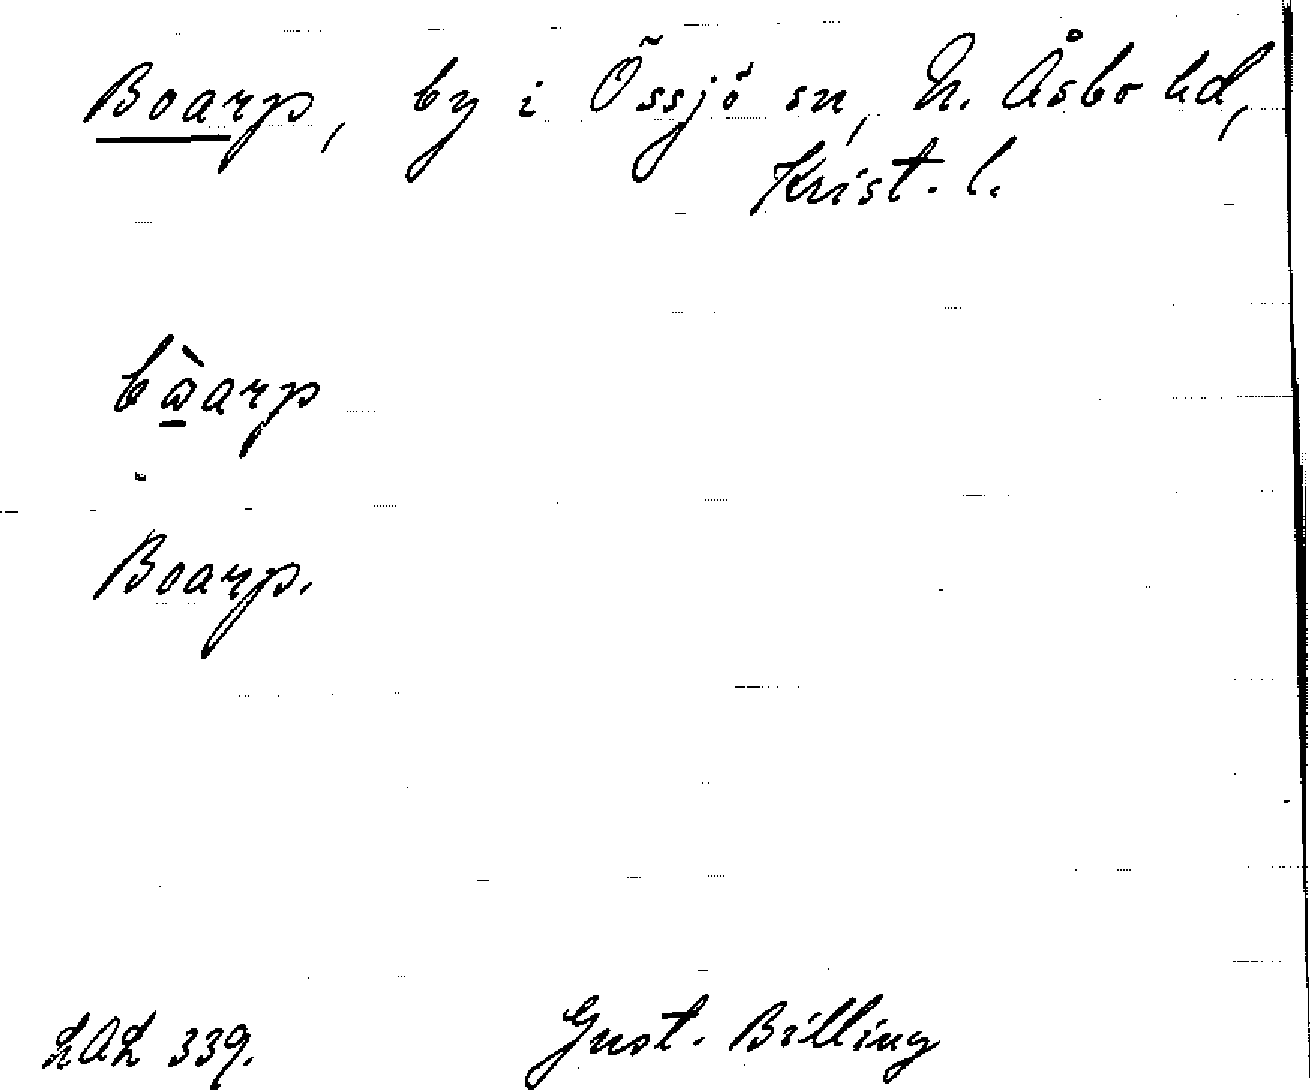 Boarp, by i Össjö sn, N. Åsbo hd,
Krist. l.
bὰarp
Boarp.
LAL 339.
Gust. Billing